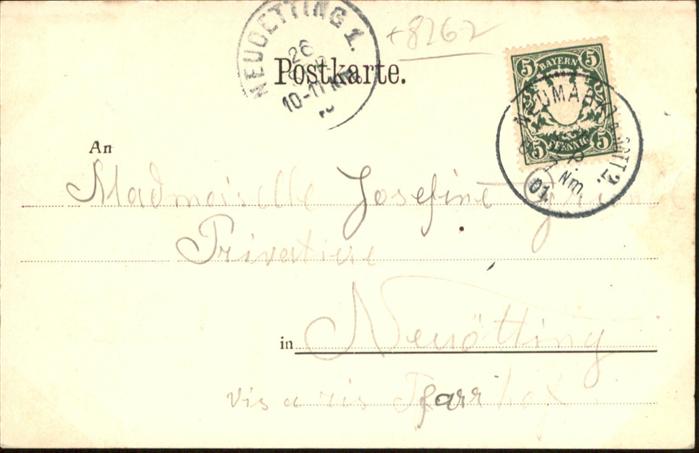 NEUOETTING 1.
26
10-11
+8262
Postkarte.
5 BAYERN 5
5 PFENNIG 5
NEUMARKT
Nm.
01
An
Madmoiselle Josefine
Privatiere
in Neuötting
vis a vis Pfarrhof